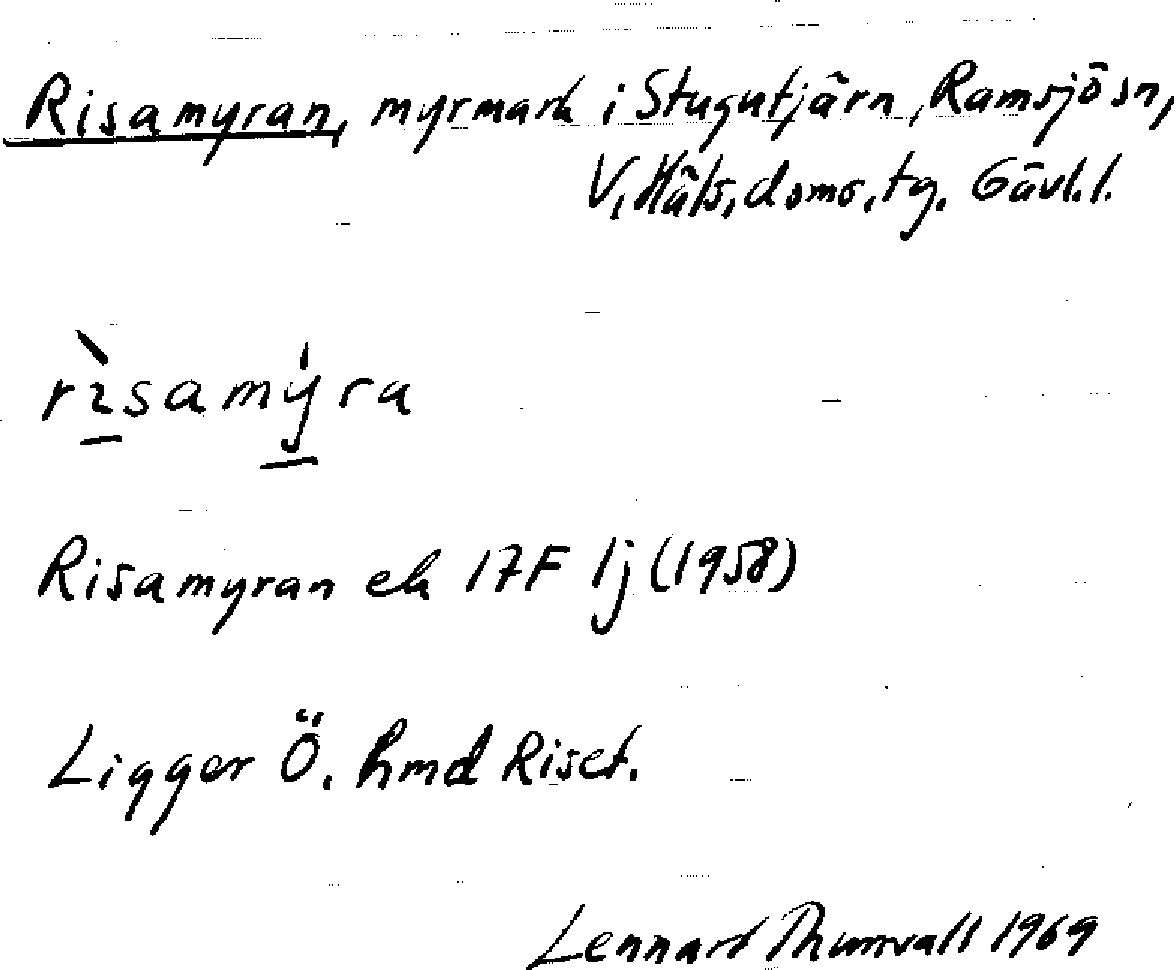 Risamyran, myrmark i Stugutjärn, Ramsjö sn,
V. Häls. doms. tg. Gävl. l.
rìsamýra
Risamyran ek 17F Ij (1958)
Ligger Ö. hmd Riset.
Lennart Thunvall 1969